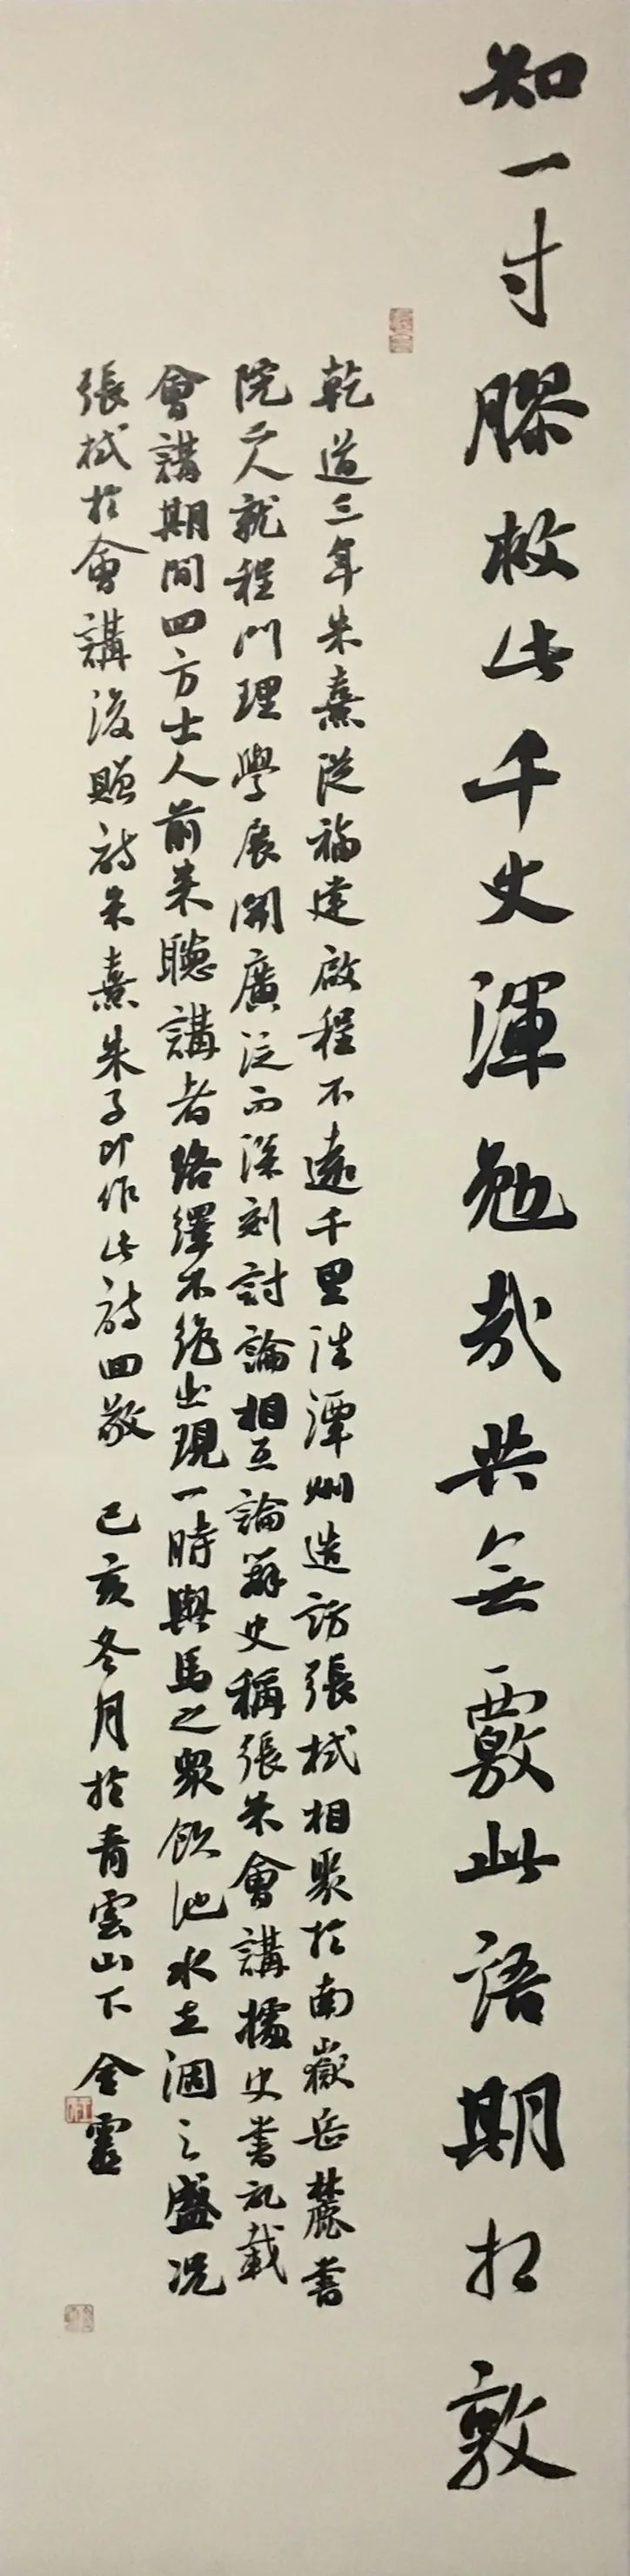 知一寸膠救此千丈渾勉哉共無斁此語期相敦
乾道三年朱熹從福建啟程不遠千里往潭州造訪張栻相聚於南嶽岳麓書
院二人就程門理學展開廣泛而深刻討論相互論辯史稱張朱會講據史書記載
會講期間四方士人前來聽講者絡繹不絕出現一時輿馬之眾飲池水立涸之盛况
張栻於會講後贈詩朱熹朱子即作此詩回敬 己亥冬月於青雲山下 金靈